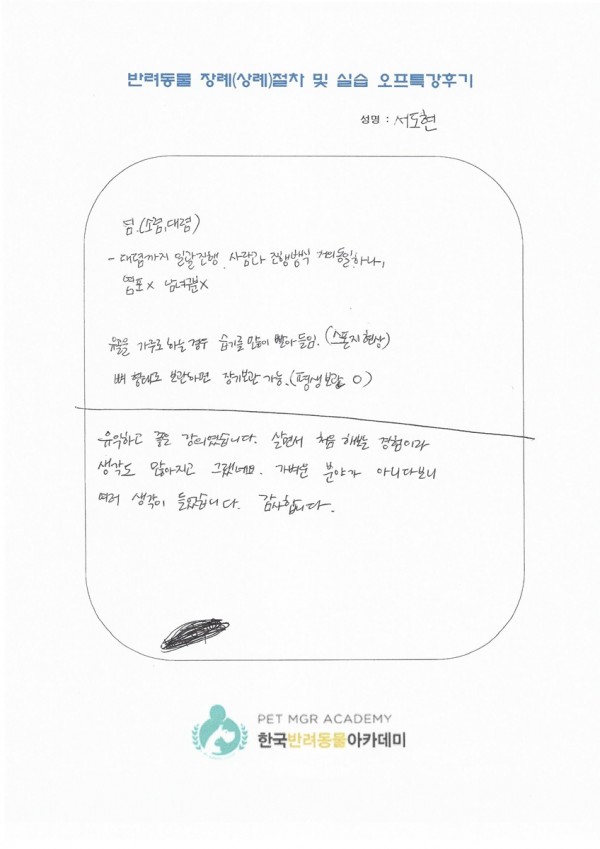 반려동물 장례(상례)절차 및 실습 오프특강후기
성명 : 서도현
염.(소렴,대렴)
- 대렴까지 일괄진행. 사람과 진행방식 거의동일하나,
염포x 남녀구분x
유골을 가루로 하는 경우 습기를 많이 빨아들임. (스폰지 현상)
뼈 형태로 보관하면 장기보관 가능. (평생보관 O)
유익하고 좋은 강의였습니다. 살면서 처음 해보는 경험이라
생각도 많아지고 그랬네요. 가벼운 분야가 아니다보니
여러 생각이 들었습니다. 감사합니다.
PET MGR ACADEMY
한국반려동물아카데미